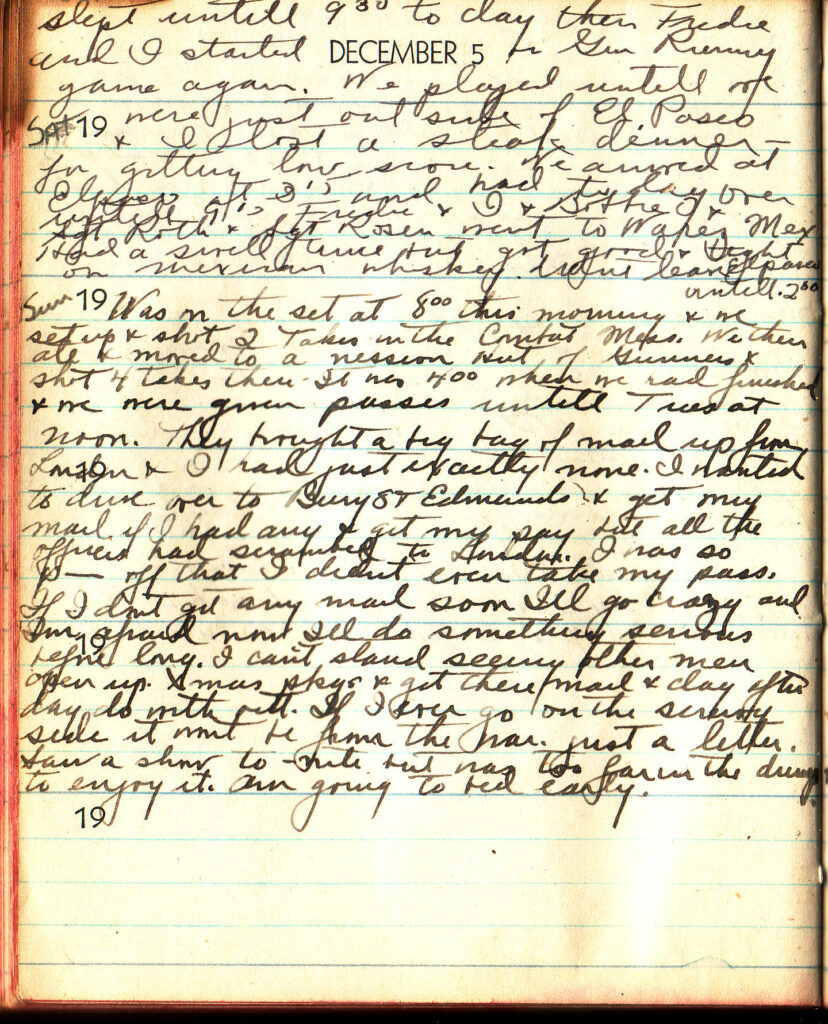 slept untill 9 30 to day then Fredie
and I started DECEMBER 5 Gin Rummy
game again. We played untill we
were just out side of El Paseo
Sat 19 & I lost a steak dinner-
for getting low score. We arrived at
Elpaso at and had to day over
untill Fredie & I &
Sgt Roth & Sgt Rosen went to Warez Mex
Had a swell time but got good & tight
on mexican whiskey. wont leave Elpaso
untill 2 00
Sun 19 Was on the set at 8 00 this morning & we
set up & shot 2 takes in the Combat Mess. We then
ate & moved to a nession hut of Gunners &
shot 4 takes there. It was 4 00 when we had finished
& we were given passes untill Tues at
noon. They brought a big bag of mail up from
London & I had just exactly none. I wanted
19
to drive over to Bury St Edmunds & get my
mail if I had any & get my pay but all the
officers had scrambled to London. I was so
p— off that I didnt even take my pass.
If I dont get any mail soon Ill go crazy and
Im afraid now Ill do something serious
19
before long. I cant stand seeing other men
open up Xmas pkgs & get there mail & day after
day do with out. If I ever go on the screwy
side it wont be from the war. just a letter.
Saw a show to-nite but was too far in the dumps
to enjoy it. am going to bed early.
19